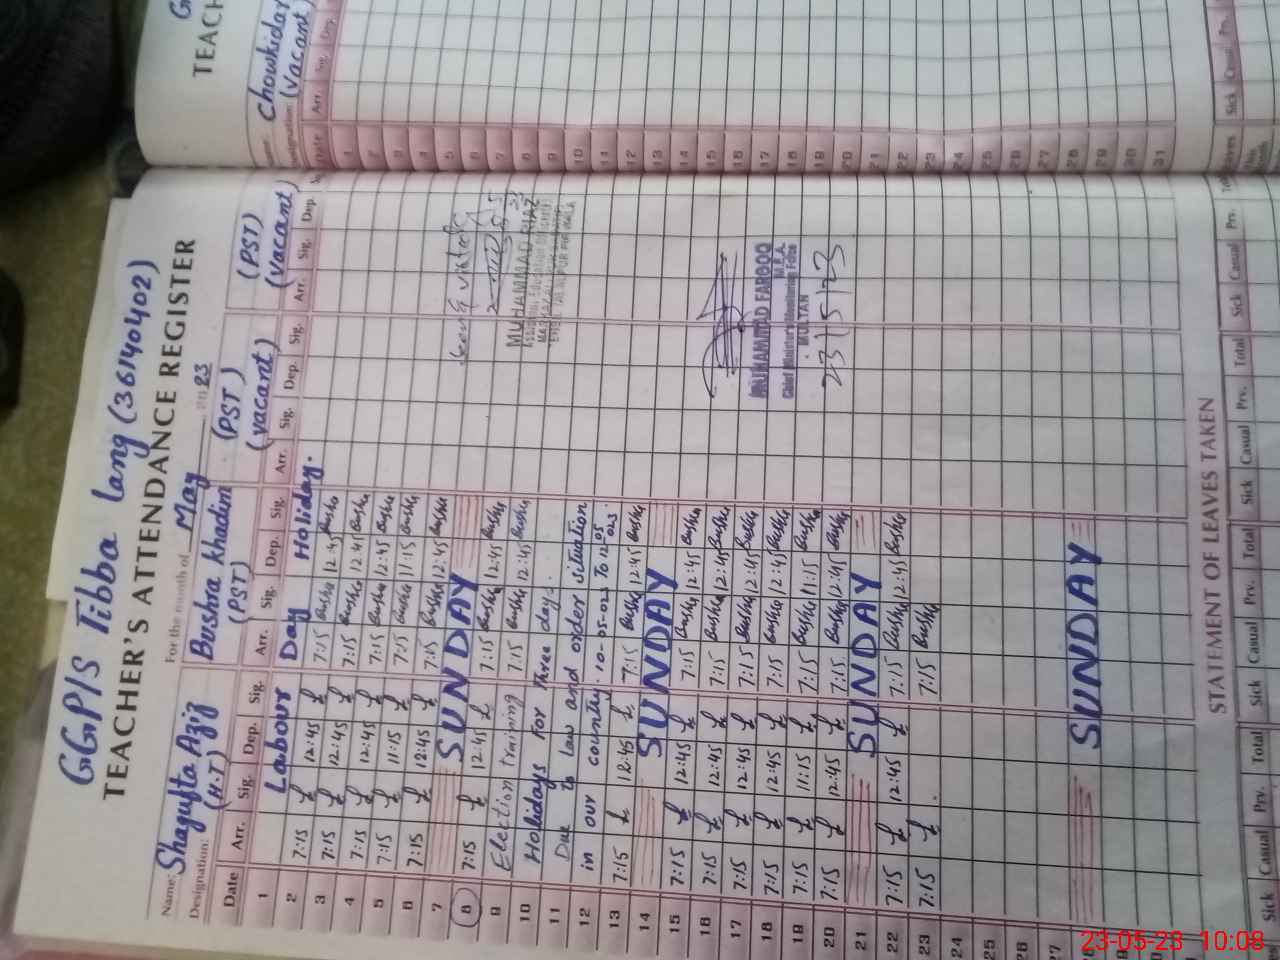 GGP/S Tibba Lang (36140402)
TEACHER'S ATTENDANCE REGISTER
For the month of May 23
Name: Shagufta Aziz Bushra Khadim (PST) (PST)
Designation: (H.T) (PST) (Vacant) (Vacant)
Date Arr. Sig. Dep. Sig. Arr. Sig. Dep. Sig. Arr. Sig. Dep. Sig. Arr. Sig. Dep.
1 Labour Day Holiday.
2 7:15 12:45 7:15 Bushra 12:45 Bushra
3 7:15 12:45 7:15 Bushra 12:45 Bushra
4 7:15 12:45 7:15 Bushra 12:45 Bushra
5 7:15 11:15 7:15 Bushra 11:15 Bushra
6 7:15 12:45 7:15 Bushra 12:45 Bushra
7 SUNDAY
8 7:15 12:45 7:15 Bushra 12:45 Bushra
9 Election training 7:15 Bushra 12:45 Bushra
10 Holidays For Three day.
11 Due to law and order situation
12 in our country. 10-05-023 To 12-05-023.
13 7:15 12:45 7:15 Bushra 12:45 Bushra
14 SUNDAY
15 7:15 12:45 7:15 Bushra 12:45 Bushra
16 7:15 12:45 7:15 Bushra 12:45 Bushra
17 7:15 12:45 7:15 Bushra 12:45 Bushra
18 7:15 12:45 7:15 Bushra 12:45 Bushra
19 7:15 11:15 7:15 Bushra 11:15 Bushra
20 7:15 12:45 7:15 Bushra 12:45 Bushra
21 SUNDAY
22 7:15 12:45 7:15 Bushra 12:45 Bushra
23 7:15 7:15 Bushra
24
25
26
27
28 SUNDAY
MUHAMMAD RIAZ
Assistant Education Officer
MUHAMMAD FAROOQ
M.E.A.
Chief Minister's Monitoring Force
MULTAN
23/5/23
STATEMENT OF LEAVES TAKEN
Sick Casual Prv. Total Sick Casual Prv. Total Sick Casual Prv. Total Sick Casual Prv.
TEACH
Chowkidar
Designation: (Vacant)
Date Arr. Sig. Dep.
1
2
3
4
5
6
7
8
9
10
11
12
13
14
15
16
17
18
19
20
21
22
23
24
25
26
27
28
29
30
31
Leaves Sick Casual Prv.
23-05-23 10:08